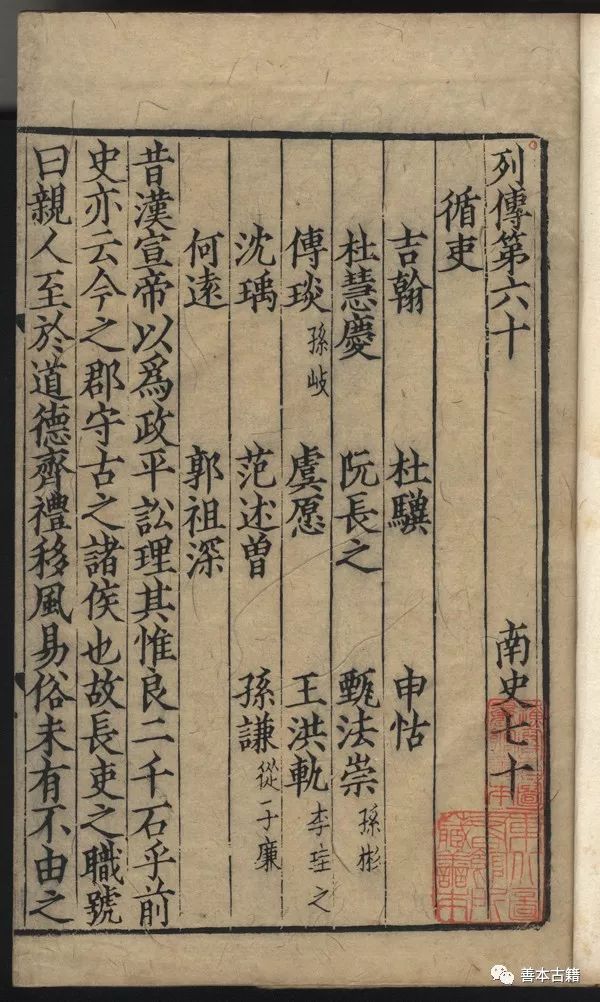 列傳第六十 南史七十
循吏
吉翰 杜驥 申怙
杜慧慶 阮長之 甄法崇 孫彬
傳琰 孫岐 虞愿 王洪軌 李珪之
沈瑀 范述曽 孫謙 從子廉
何逺 郭祖深
昔漢宣帝以爲政平訟理其惟良二千石乎前
史亦云今之郡守古之諸侯也故長吏之職號
曰親人至於道德齊禮移風易俗未有不由之
善本古籍